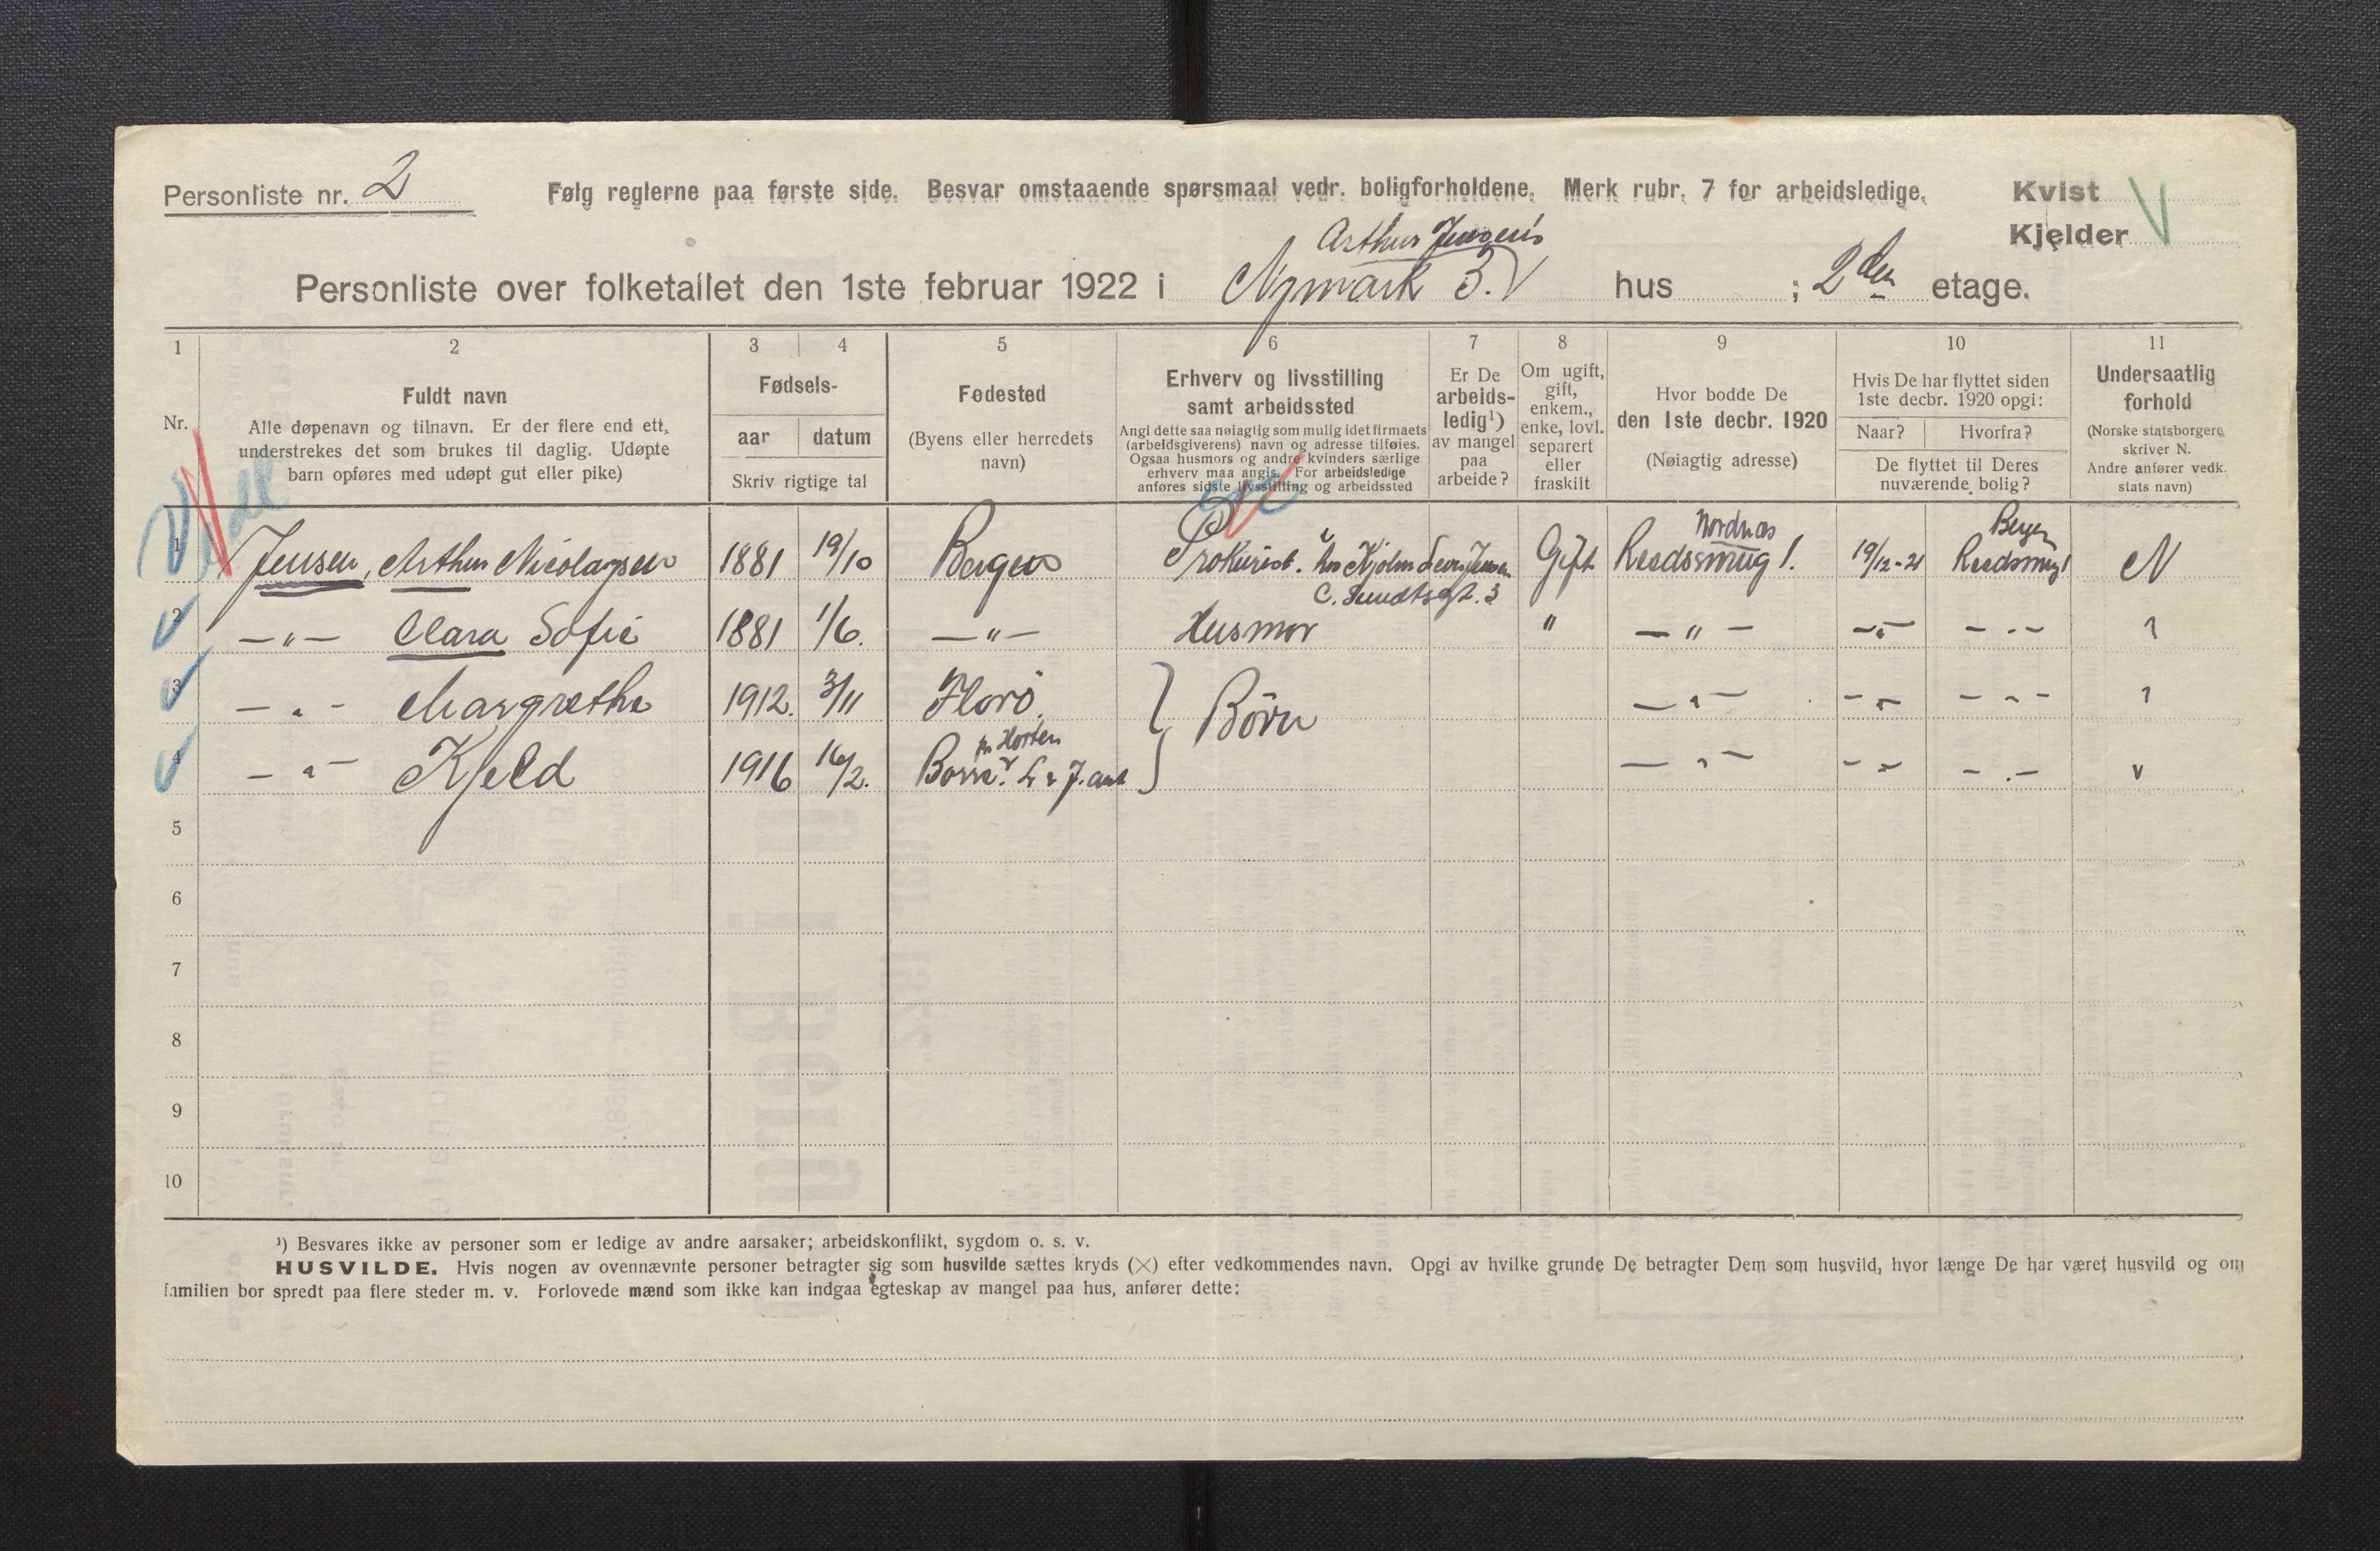 Personliste nr. 2
Følg reglerne paa første side. Besvar omstaaende spørsmaal vedr. boligforholdene. Merk rubr. 7 for arbeidsledige.
Kvist
Kjelder
Arthur Jensens
Personliste over folketallet den 1ste februar 1922 i Nymark 3. hus ; 2den etage.
1 2 3 4 5 6 7 8 9 10 11
Nr.
Fuldt navn
Alle døpenavn og tilnavn. Er der flere end ett,
understrekes det som brukes til daglig. Udøpte
barn opføres med udøpt gut eller pike)
Fødsels-
aar datum
Skriv rigtige tal
Fødested
(Byens eller herredets
navn)
Erhverv og livsstilling
samt arbeidssted
Angi dette saa nøiagtig som mulig idet firmaets
(arbeidsgiverens) navn og adresse tilføies.
Ogsaa husmors og andre kvinders særlige
erhverv maa angis. For arbeidsledige
anføres sidste livsstilling og arbeidssted
Er De
arbeids-
ledig¹)
av mangel
paa
arbeide?
Om ugift,
gift,
enkem.,
enke, lovl.
separert
eller
fraskilt
Hvor bodde De
den 1ste decbr. 1920
(Nøiagtig adresse)
Hvis De har flyttet siden
1ste decbr. 1920 opgi:
Naar? Hvorfra?
De flyttet til Deres
nuværende bolig?
Undersaatlig
forhold
(Norske statsborgere
skriver N.
Andre anfører vedk.
stats navn)
Nordnæs Bergen
1 Jensen, Arthur Nicolaysen 1881 19/10 Bergen Prokurist. hos Hjelm Jensen Gift 19/12-21 N
C. Sundtsgt. 3
2 —"— Clara Sofie 1881 1/6. —"— Husmor " —"— —"— —"— "
3 —"— Margrethe 1912. 3/11 Florø. Børn —"— —"— —"— "
Horten
4 —"— Kjeld 1916 16/2. Borre —"— —"— —"— "
5
6
7
8
9
10
¹) Besvares ikke av personer som er ledige av andre aarsaker; arbeidskonflikt, sygdom o. s. v.
HUSVILDE. Hvis nogen av ovennævnte personer betragter sig som husvilde sættes kryds (×) efter vedkommendes navn. Opgi av hvilke grunde De betragter Dem som husvild, hvor længe De har været husvild og om
familien bor spredt paa flere steder m. v. Forlovede mænd som ikke kan indgaa egteskap av mangel paa hus, anfører dette: